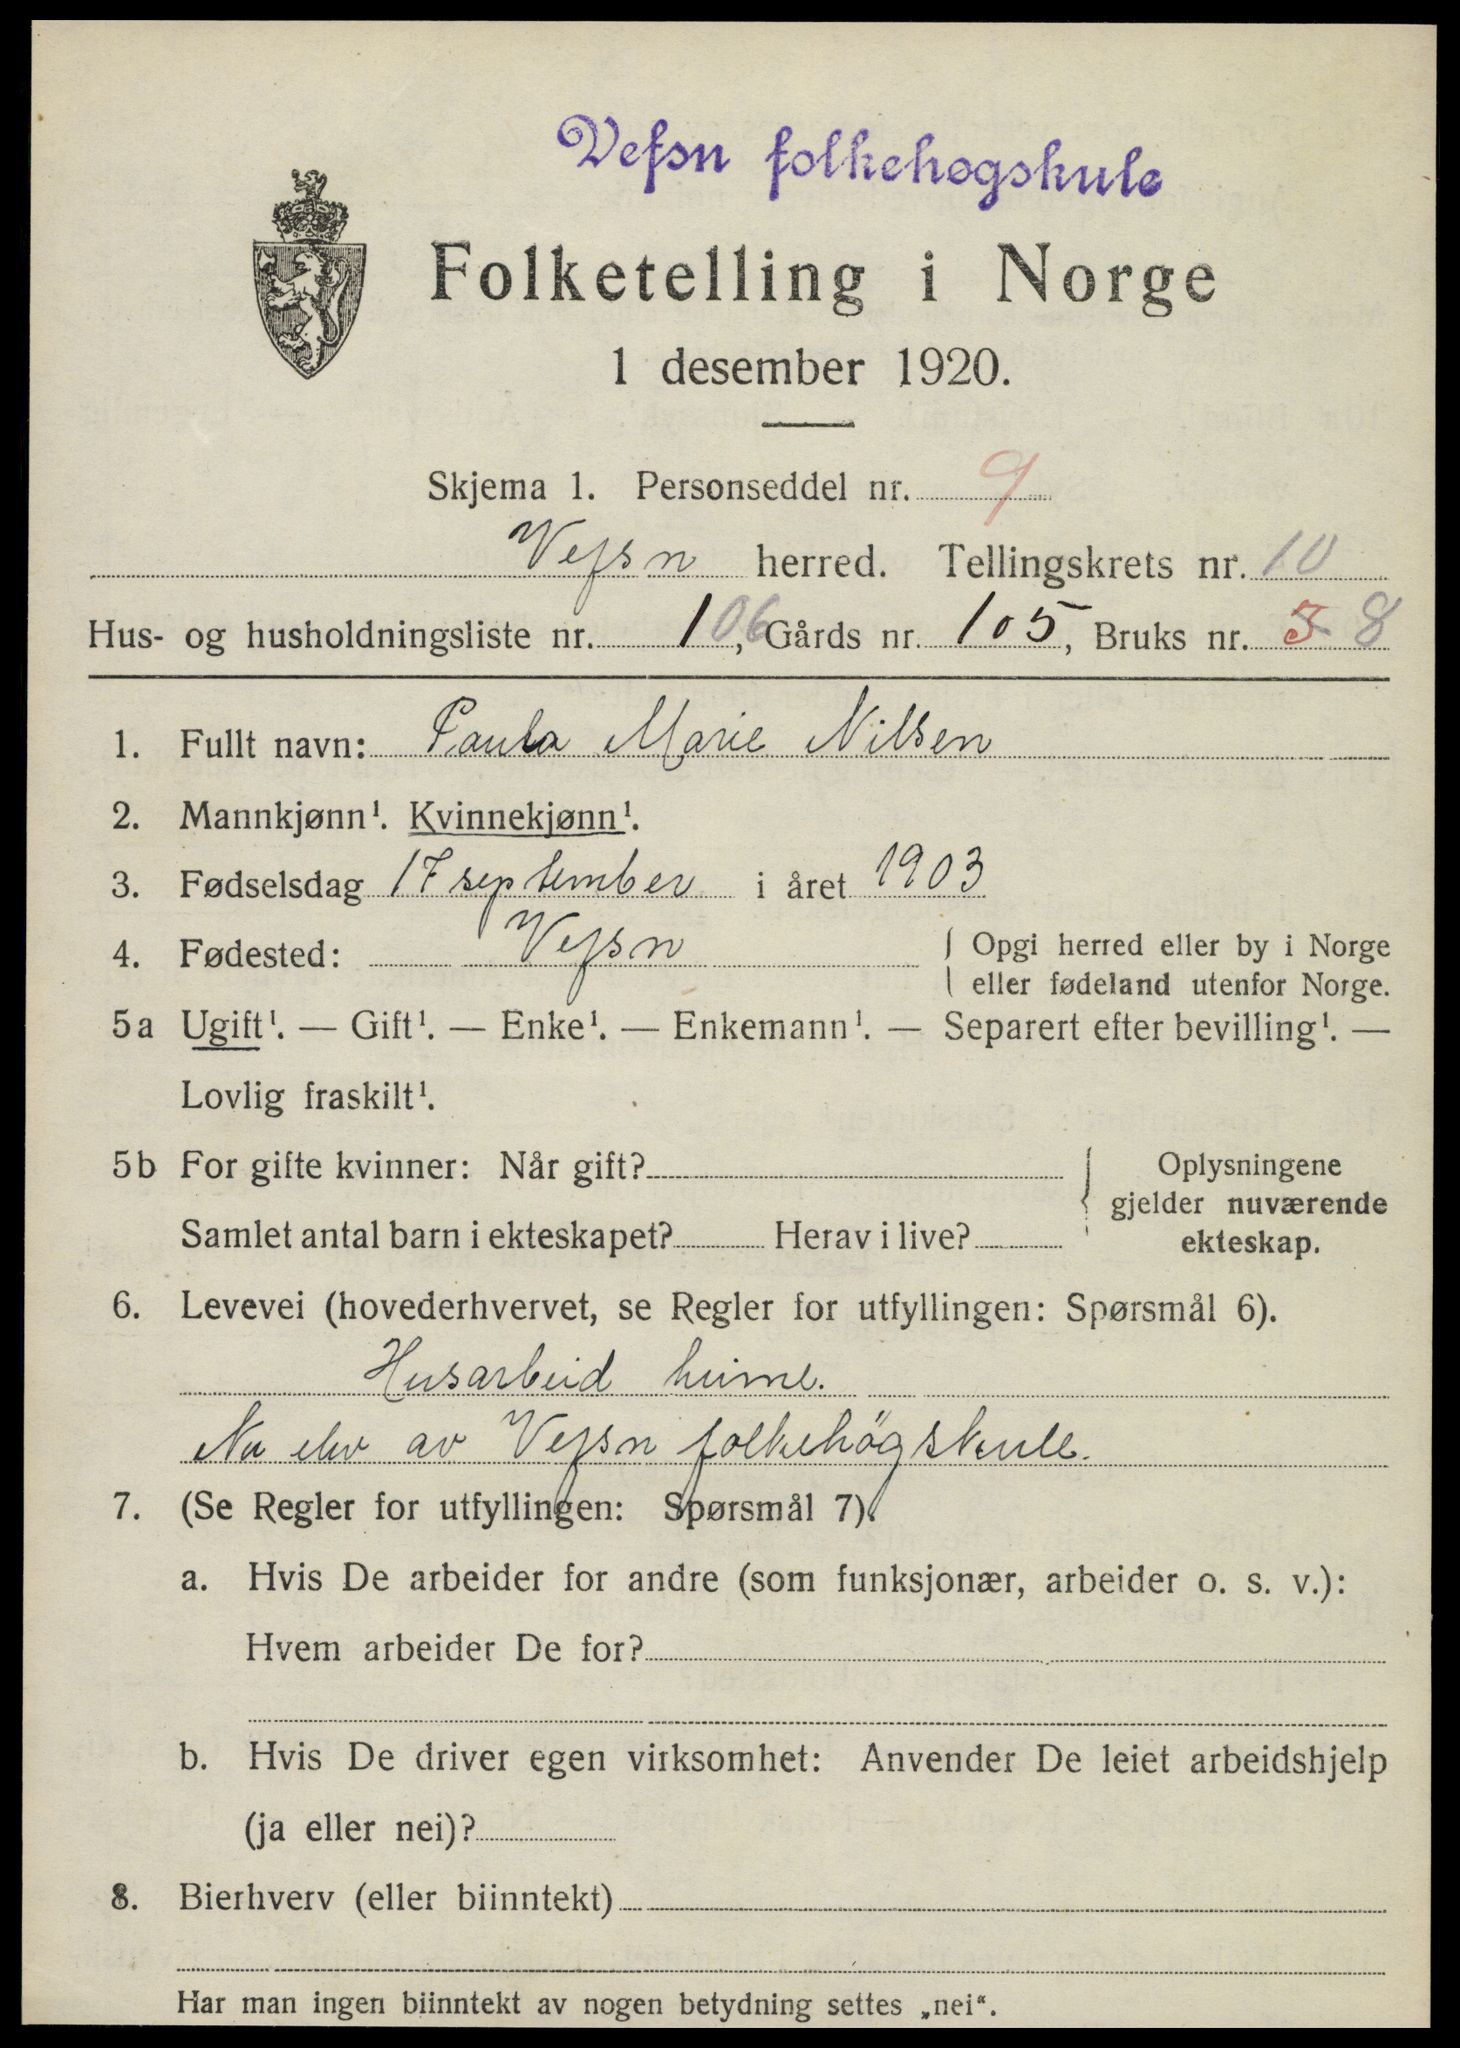 Vefsn folkehøgskule
Folketelling i Norge
1 desember 1920.
Skjema 1. Personseddel nr. 9
Vefsn herred. Tellingskrets nr. 10
Hus- og husholdningsliste nr. 106, Gårds nr. 105, Bruks nr. 8
1. Fullt navn: Paula Marie Nilsen
2. Mannkjønn¹. Kvinnekjønn¹.
3. Fødselsdag 17 september i året 1903
4. Fødested: Vefsn { Opgi herred eller by i Norge
eller fødeland utenfor Norge.
5a Ugift¹. — Gift¹. — Enke¹. — Enkemann¹. — Separert efter bevilling¹. —
Lovlig fraskilt¹.
5b For gifte kvinner: Når gift?
Samlet antal barn i ekteskapet? Herav i live?
Oplysningene
gjelder nuværende
ekteskap.
6. Levevei (hovederhvervet, se Regler for utfyllingen: Spørsmål 6).
Husarbeid heime.
Nu elev av Vefsn folkehögskule.
7. (Se Regler for utfyllingen: Spørsmål 7).
a. Hvis De arbeider for andre (som funksjonær, arbeider o. s. v.):
Hvem arbeider De for?
b. Hvis De driver egen virksomhet: Anvender De leiet arbeidshjelp
(ja eller nei)?
8. Bierhverv (eller biinntekt)
Har man ingen biinntekt av nogen betydning settes „nei“.